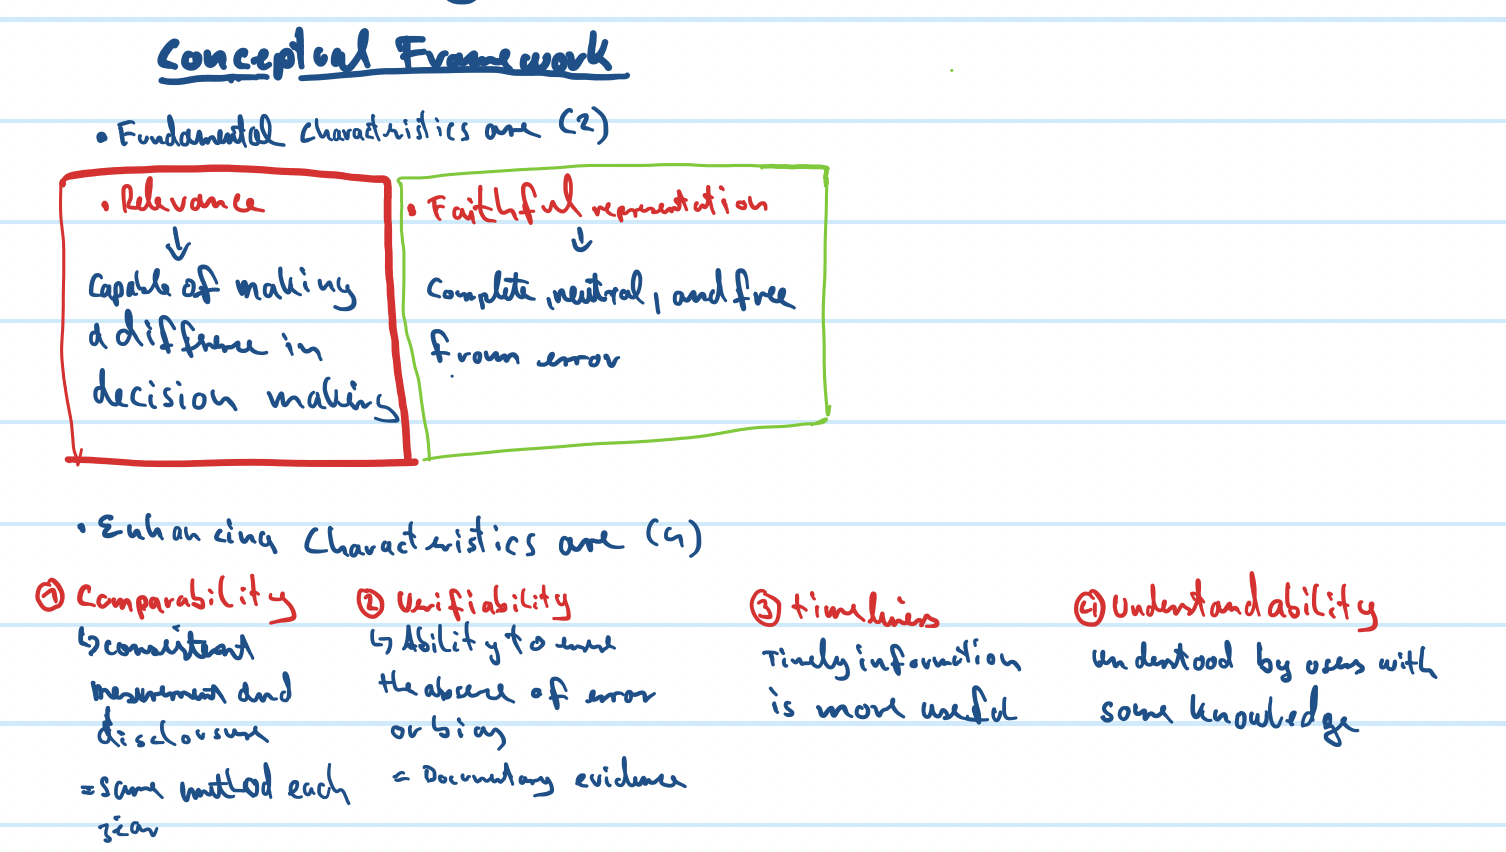 Conceptual Framework
• Fundamental characteristics are (2)
• Relevance
↓
capable of making
a difference in
decision making
• Faithful representation
↓
complete, neutral, and free
from error
• Enhancing characteristics are (4)
① Comparability
↳ consistent
mesurement and
disclosure
= same method each
year
② Verifiability
↳ Ability to
the absence of error
or bias
= Documentary evidence
③ timeliness
Timely information
is more useful
④ Understandability
understood by users with
some knowledge